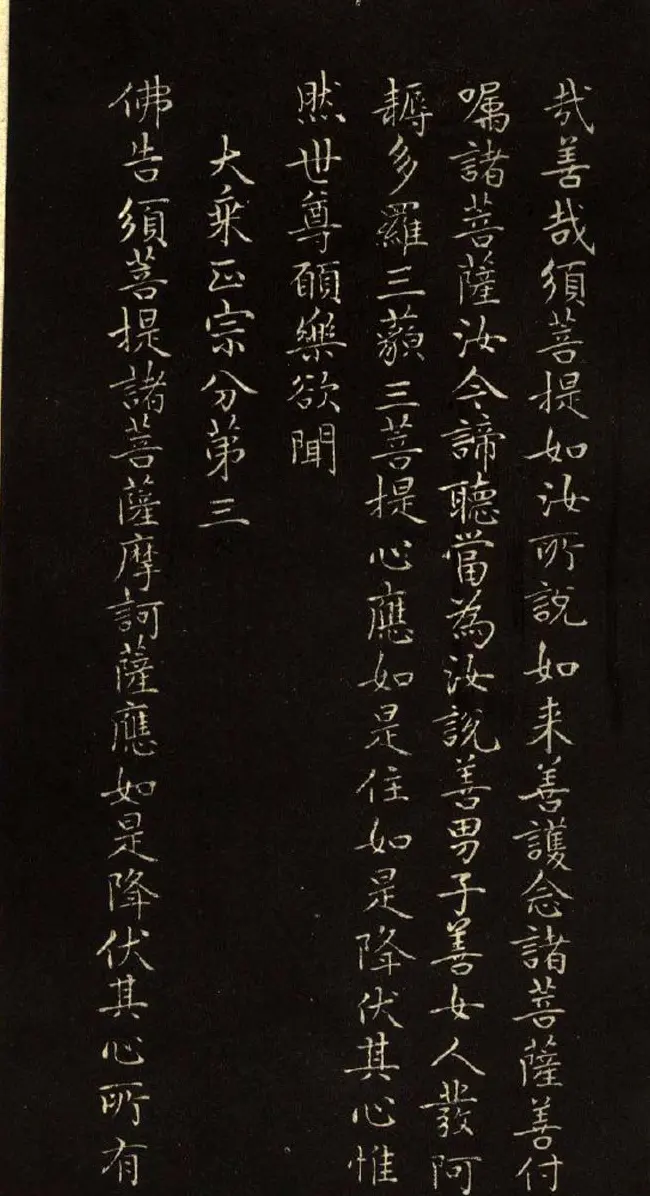 哉善哉須菩提如汝所說如来善護念諸菩薩善付
囑諸菩薩汝今諦聽當為汝說善男子善女人發阿
耨多羅三藐三菩提心應如是住如是降伏其心惟
然世尊願樂欲聞
大乘正宗分第三
佛告須菩提諸菩薩摩訶薩應如是降伏其心所有